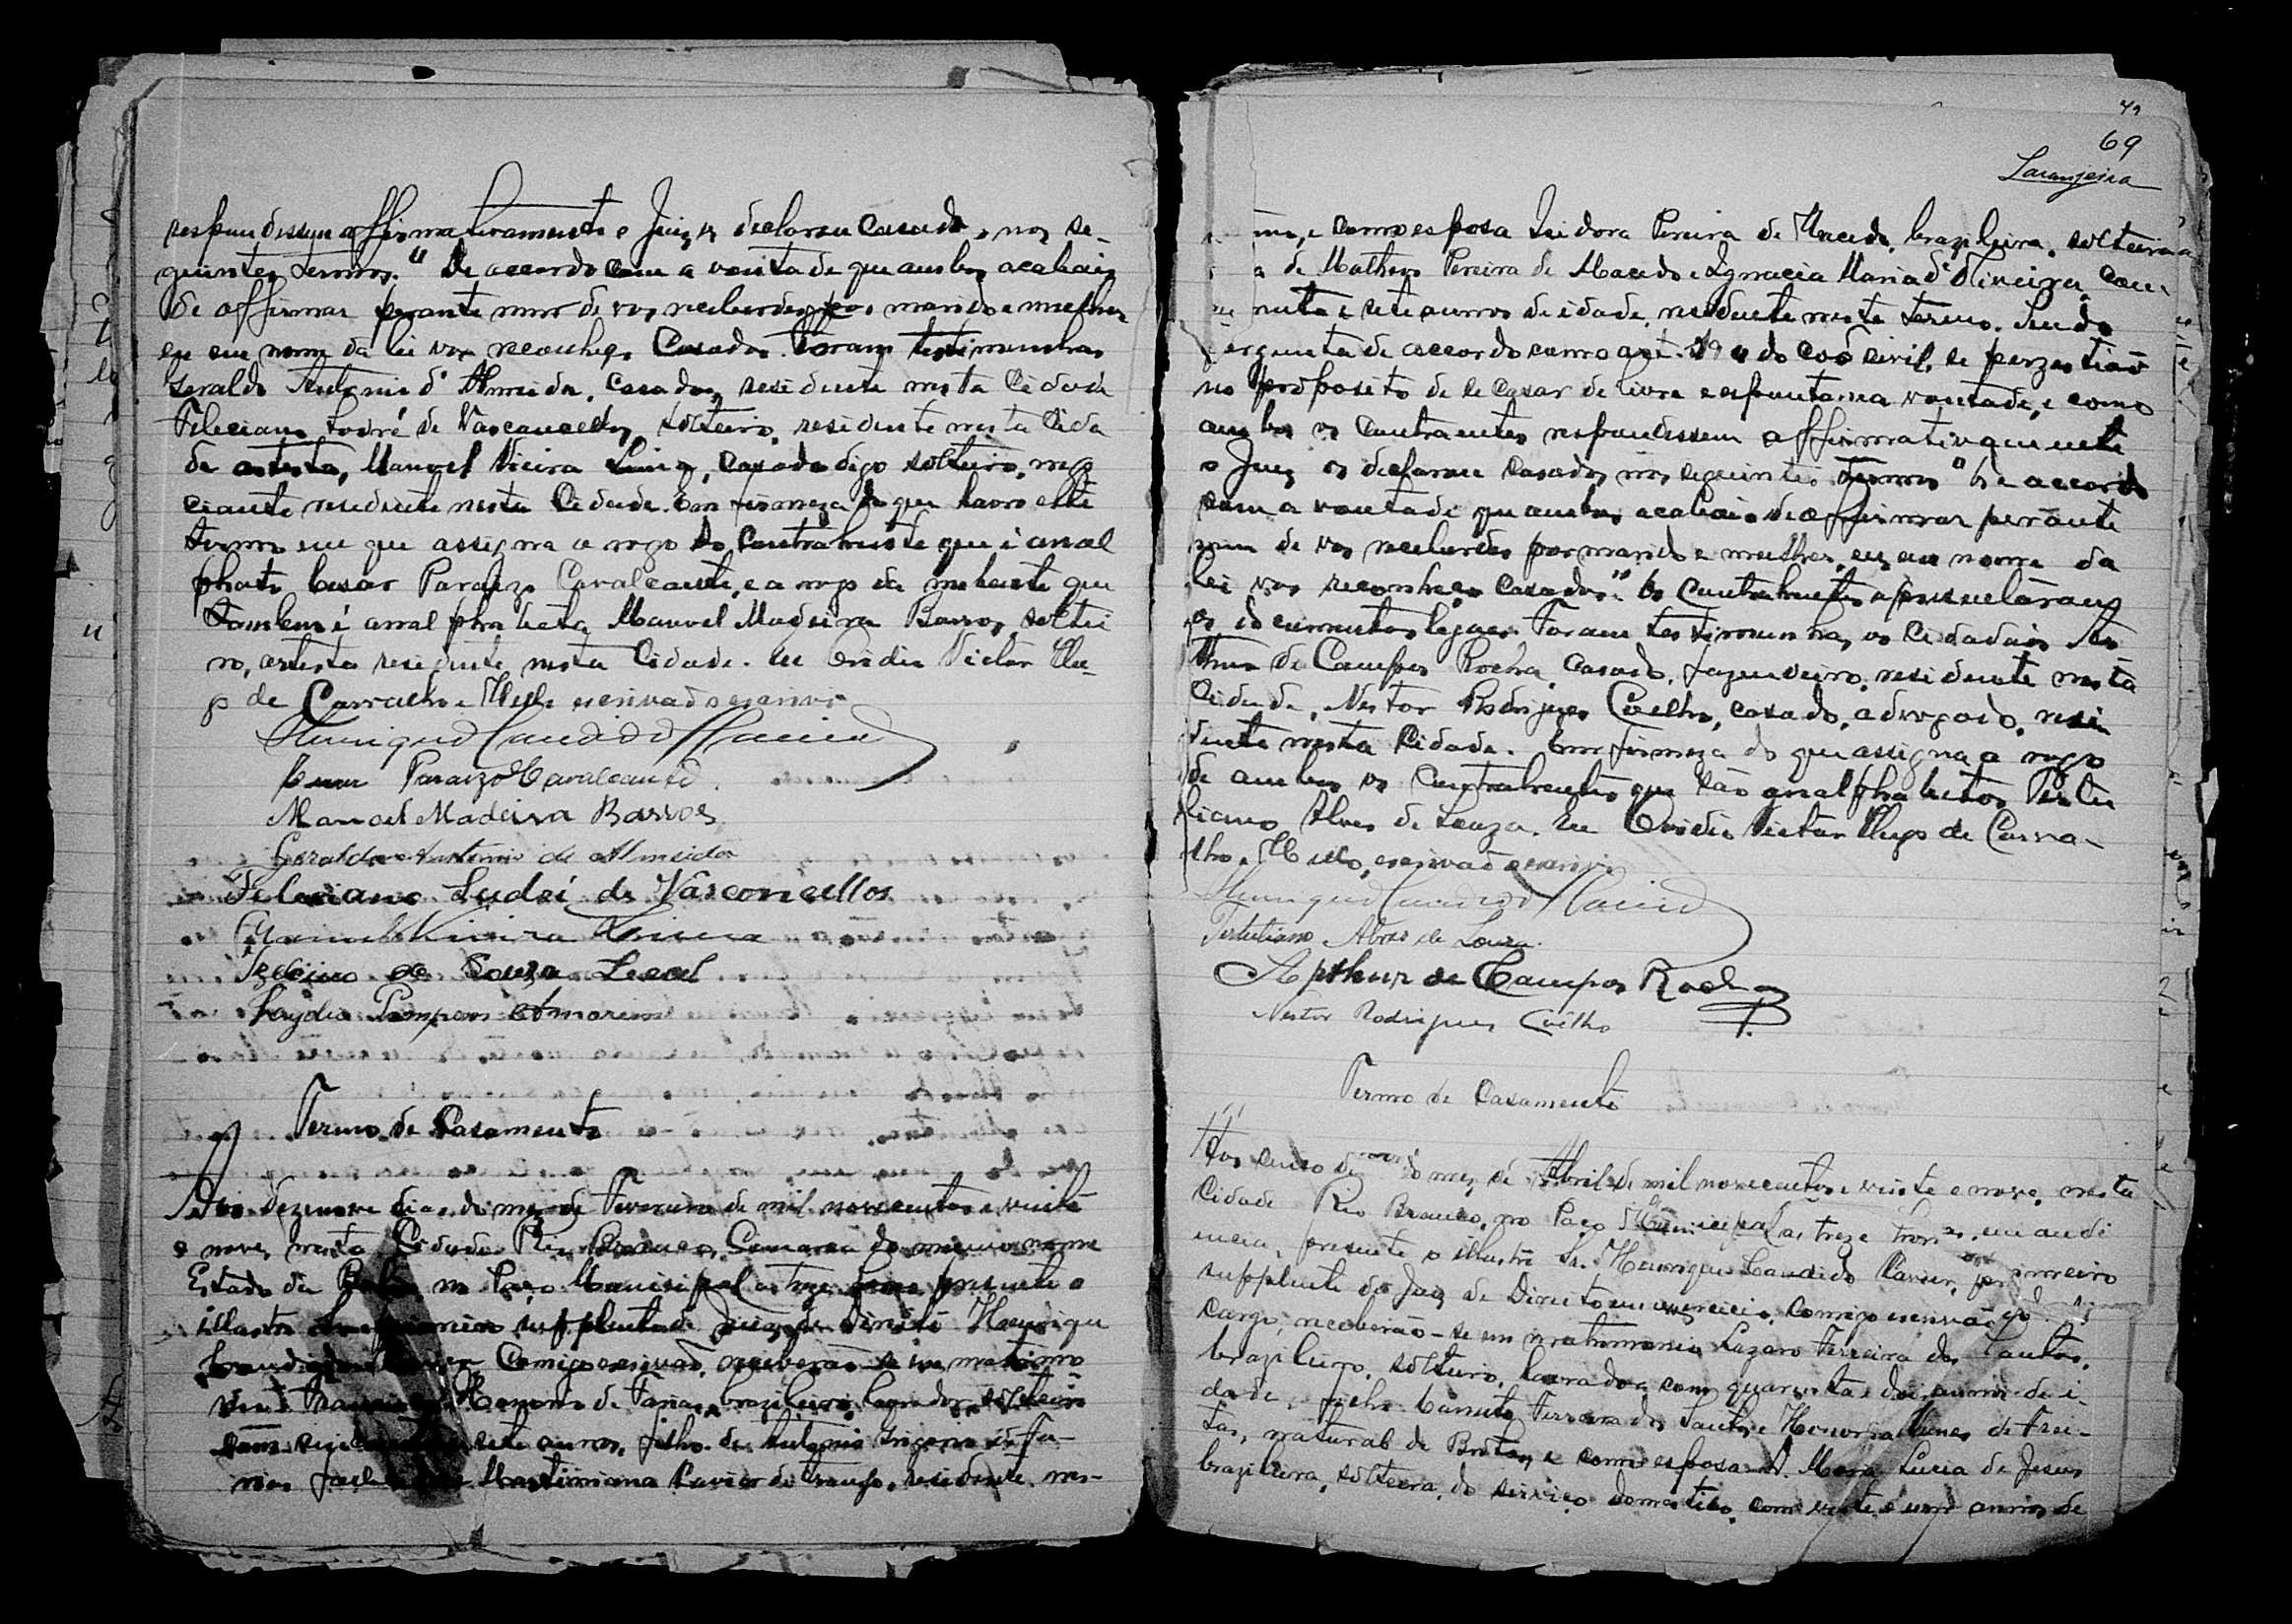 respondissem affirmativamente o Juiz os declarou casados, nos se-
guintes termos. "De accordo com a vontade que ambos acabais
de affirmar perante mim de vos receberdes por marido e mulher
eu em nome da lei vos reconheço Casados. Foram testimunhas
Geraldo Antonio d'Almeida, casado, residente nesta Cidade
Feliciano Sodré de Vasconcellos, solteiro, residente nesta Cida
de artista, Manoel Vieira Lima, casado digo solteiro, nego
ciante residente nesta Cidade. Em firmeza do que lavro este
termo em que assigna a rogo do Contrahente que é anal
phabeto Cesar Paraizo Cavalcante, e a rogo da nubente que
tambem é analphabeta Manoel Madeira Barros, soltei
ro, artista residente nesta Cidade. Eu Ovidio Victor Hu-
go de Carvalho e Mello escrivão escrevi
Henrique Candido Xavier
Cesar Paraizo Cavalcante
Manoel Madeira Barros
Geraldo Antonio de Almeida
Feleciano Sudré de Vasconcellos
Manoel Vieira Lima
de Souza Leal
Pompon Amorim
Termo de Casamento
Aos dezenove dias do mez de Fevereiro de mil novecentos e vinte
e nove, nesta Cidade Rio Branco, Comarca do mesmo nome
Estado da Bahia no Paço Municipal as treze horas presente o
illustre Sr. primeiro supplente do Juiz de Direito Henrique
Candido Xavier Comigo escrivão, receberão-se em matrimo-
nio Honorio de Faria, brazileiro, lavrador, solteiro
com sete annos, filho de Antonio de Fa-
rias Martiniana Xavier de Araujo, residente nes-
49
69
Laranjeira
mo, e como esposa Izidora Pereira de Macedo, brazileira, solteira
a de Matheos Pereira de Macedo e Ignacia Maria d'Oliveira, com
nta e sete annos de idade, residente neste termo. Sendo
pergunta de accordo com o art. 194 do cod civil, se persistião
no proposito de se casar de livre e espontanea vontade, e como
ambos os contraentes respondissem affirmativamente
o Juiz os declarou casados nos seguintes termos "De accordo
com a vontade que ambos acabais de affirmar perante
mim de vos receberdes por marido e mulher, eu em nome da
lei vos reconheço casados." Os Contrahentes apresentaram
os documentos legaes. Foram testimunhas, os Cidadãos Ar
thur de Campos Rocha, casado, fazendeiro, residente nesta
Cidade, Nestor Rodrigues Coelho, casado, advogado, resi
dente nesta Cidade. Em firmeza do que assigna a rogo
de ambos os Contrahentes que são analphabetos Tertu
liano Alves de Souza. Eu Ovidio Victor Hugo de Carva-
lho e Mello, escrivão escrevi
Henrique Candido Xavier
Tertuliano Alves de Souza.
Arthur de Campos Rocha
Nestor Rodrigues Coelho
Termo de Casamento
Aos cinco do mez de Abril de mil novecentos e vinte e nove, nesta
Cidade Rio Branco, no Paço Municipal as treze horas, em audi
encia, presente o illustre Sr. Henrique Candido Xavier, primeiro
supplente do Juiz de Direito em exercicio, comigo escrivão do
cargo, receberão-se em matrimonio Lazaro Ferreira dos Santos,
brazileiro, solteiro, lavrador com quarenta e dois annos de i-
dade, filho Canuto Ferreira dos Santos e Honoria Nunes de Frei-
tas, natural de Brotas, e como esposa D. Maria Lucia de Jesus
brazileira, solteira, do serviço domestico, com vinte e um annos de